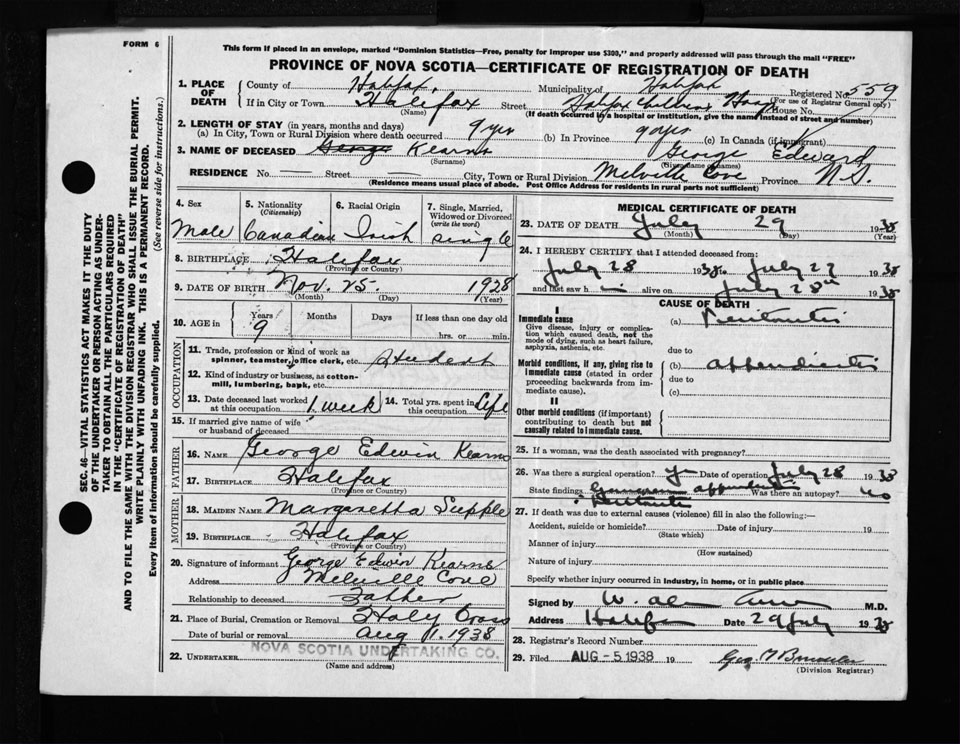 FORM 6
This form if placed in an envelope, marked "Dominion Statistics—Free, penalty for improper use $300," and properly addressed will pass through the mail "FREE"
PROVINCE OF NOVA SCOTIA—CERTIFICATE OF REGISTRATION OF DEATH
1. PLACE OF DEATH
County of Halifax. Municipality of Halifax Registered No. 559
(For use of Registrar General only)
If in City or Town Halifax Street Halifax Childrens Hosp House No.
(Name) (If death occurred in a hospital or institution, give the name instead of street and number)
2. LENGTH OF STAY (in years, months and days)
(a) In City, Town or Rural Division where death occurred 9 yrs (b) In Province 9 yrs (c) In Canada (if immigrant)
3. NAME OF DECEASED George Kearns George Edward
(Surname) (Given name or names)
RESIDENCE No. — Street — City, Town or Rural Division Melville Cove Province N.S.
(Residence means usual place of abode. Post Office Address for residents in rural parts not sufficient)
4. Sex
Male
5. Nationality
(Citizenship)
Canadian
6. Racial Origin
Irish
7. Single, Married, Widowed or Divorced
(write the word)
single
8. BIRTHPLACE Halifax
(Province or Country)
9. DATE OF BIRTH Nov. 25. 1928
(Month) (Day) (Year)
10. AGE in Years 9 Months Days If less than one day old
hrs. or min.
OCCUPATION
11. Trade, profession or kind of work as spinner, teamster, office clerk, etc. Student
12. Kind of industry or business, as cotton-mill, lumbering, bank, etc.
13. Date deceased last worked at this occupation 1 week 14. Total yrs. spent in this occupation Life
15. If married give name of wife or husband of deceased
FATHER
16. NAME George Edwin Kearns
17. BIRTHPLACE Halifax
(Province or Country)
MOTHER
18. MAIDEN NAME Margaretta Supple
19. BIRTHPLACE Halifax
(Province or Country)
20. Signature of informant George Edwin Kearns
Address Melville Cove
Relationship to deceased Father
21. Place of Burial, Cremation or Removal Holy Cross
Date of burial or removal Aug 1. 1938
22. UNDERTAKER NOVA SCOTIA UNDERTAKING CO.
(Name and address)
MEDICAL CERTIFICATE OF DEATH
23. DATE OF DEATH July 29 1938
(Month) (Day) (Year)
24. I HEREBY CERTIFY that I attended deceased from:
July 28 1938 to July 29 1938
and last saw h im alive on July 28th 1938
CAUSE OF DEATH
I
Immediate cause
Give disease, injury or complication which caused death, not the mode of dying, such as heart failure, asphyxia, asthenia, etc.
(a) Peritonitis
due to
Morbid conditions, if any, giving rise to immediate cause (stated in order proceeding backwards from immediate cause).
(b) appendicitis
due to
(c)
II
Other morbid conditions (if important) contributing to death but not causally related to immediate cause.
25. If a woman, was the death associated with pregnancy?
26. Was there a surgical operation? yes Date of operation July 28 1938
State findings appendicitis Was there an autopsy? no
Peritonitis
27. If death was due to external causes (violence) fill in also the following:—
Accident, suicide or homicide? Date of injury 19
(State which)
Manner of injury
(How sustained)
Nature of injury
Specify whether injury occurred in industry, in home, or in public place
Signed by W. M.D.
Address Halifax Date 29 July 1938
28. Registrar's Record Number
29. Filed AUG -5 1938 19 Geo
(Division Registrar)
SEC. 46—VITAL STATISTICS ACT MAKES IT THE DUTY
OF THE UNDERTAKER OR PERSON ACTING AS UNDER-
TAKER TO OBTAIN ALL THE PARTICULARS REQUIRED
IN THE "CERTIFICATE OF REGISTRATION OF DEATH"
AND TO FILE THE SAME WITH THE DIVISION REGISTRAR WHO SHALL ISSUE THE BURIAL PERMIT.
WRITE PLAINLY WITH UNFADING INK. THIS IS A PERMANENT RECORD.
Every item of information should be carefully supplied. (See reverse side for instructions.)